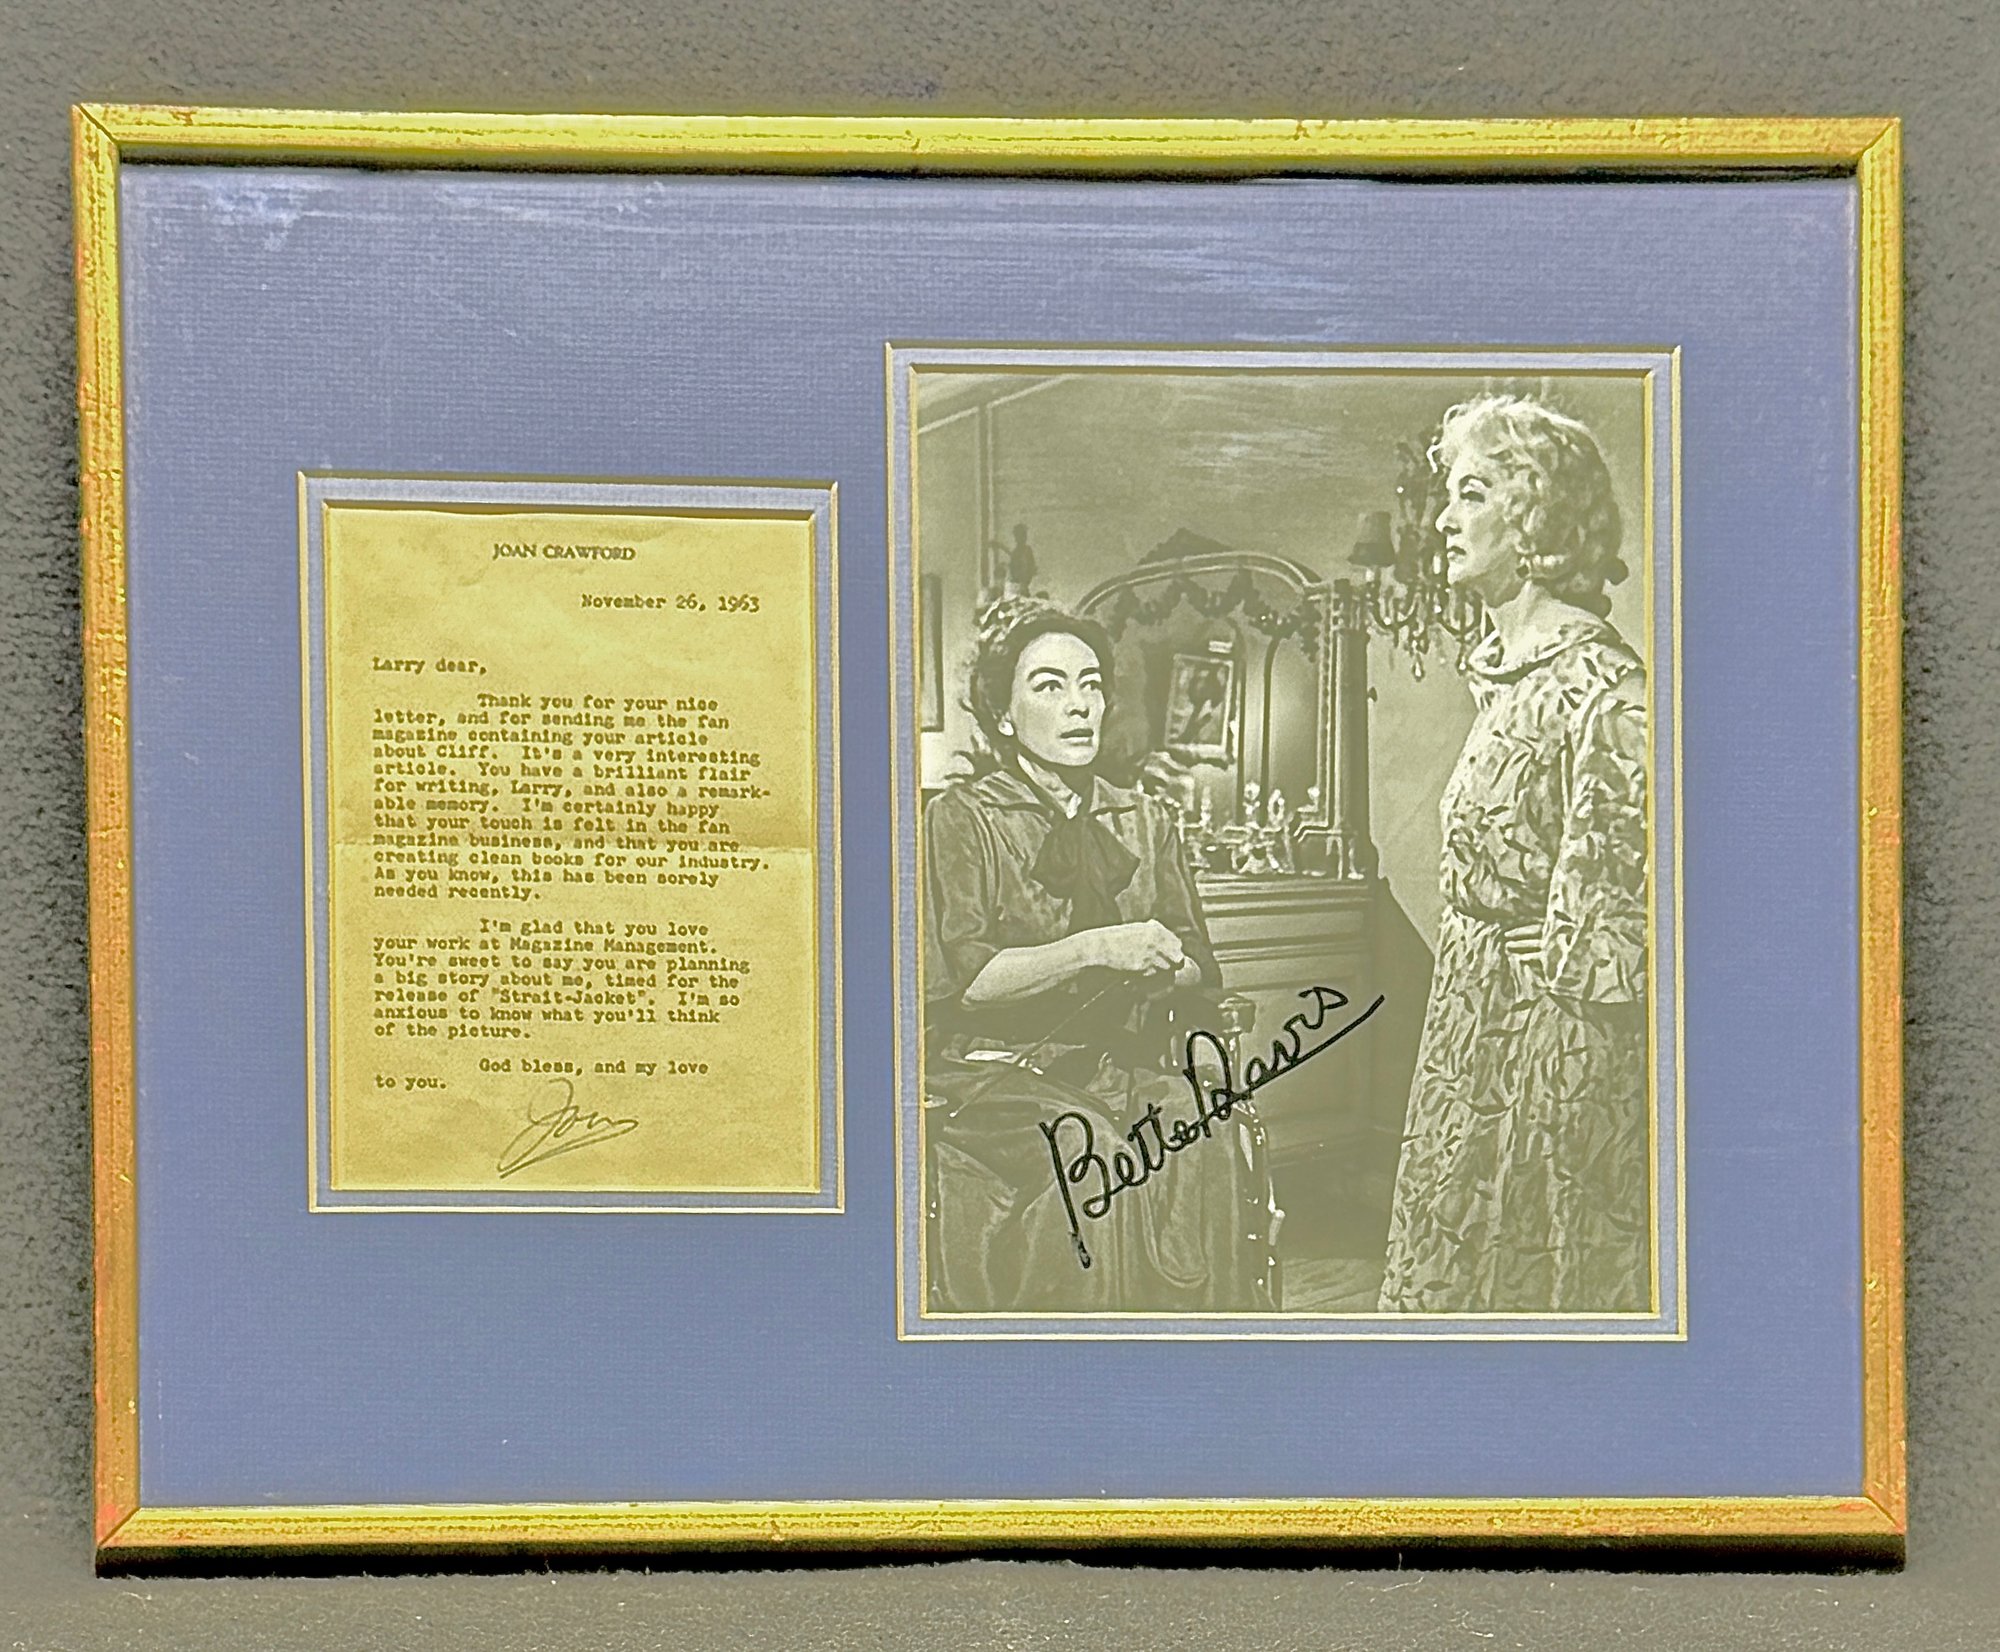 JOAN CRAWFORD
November 26, 1963
Larry dear,
Thank you for your nice
letter, and for sending me the fan
magazine containing your article
about Cliff. It's a very interesting
article. You have a brilliant flair
for writing, Larry, and also a remark-
able memory. I'm certainly happy
that your touch is felt in the fan
magazine business, and that you are
creating clean books for our industry.
As you know, this has been sorely
needed recently.
I'm glad that you love
your work at Magazine Management.
You're sweet to say you are planning
a big story about me, timed for the
release of "Strait-Jacket". I'm so
anxious to know what you'll think
of the picture.
God bless, and my love
to you.
Joan
Bette Davis